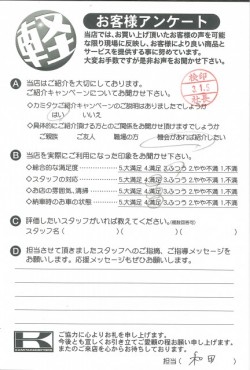 軽
お客様アンケート
当店では、お買い上げ頂いたお客様の声を可能
な限り現場に反映し、お客様により良い商品と
サービスを提供する事に努めています。
大変お手数ですが是非お声をお聞かせ下さい。
A 当店はご紹介を大切にしております。
ご紹介キャンペーンについてお聞かせ下さい。
検印
◇カミタケご紹介キャンペーンのご説明はありましたでしょうか
はい いいえ
◇具体的にご紹介頂ける方とのご関係をお聞かせ頂けますでしょうか
ご親族 ご友人 職場の方 機会があれば紹介したい
B 当店を実際にご利用になった印象をお聞かせ下さい。
◇総合的な満足度 5.大満足 4.満足 3.ふつう 2.やや不満 1.不満
◇スタッフの対応 5.大満足 4.満足 3.ふつう 2.やや不満 1.不満
◇お店の雰囲気、清掃 5.大満足 4.満足 3.ふつう 2.やや不満 1.不満
◇納車時のお車の状態 5.大満足 4.満足 3.ふつう 2.やや不満 1.不満
C 評価したいスタッフがいれば教えてください。(複数回答可)
スタッフ名( )( )( )
D 担当させて頂きましたスタッフへのご指摘、ご指導メッセージを
お願いします。応援メッセージもぜひお願いします。
K
ご協力に心よりお礼を申し上げます。
今後とも宜しくお引き立てご愛顧の程お願い申し上げます。
またのご来店を心からお待ちしております。
担当( 和田 )